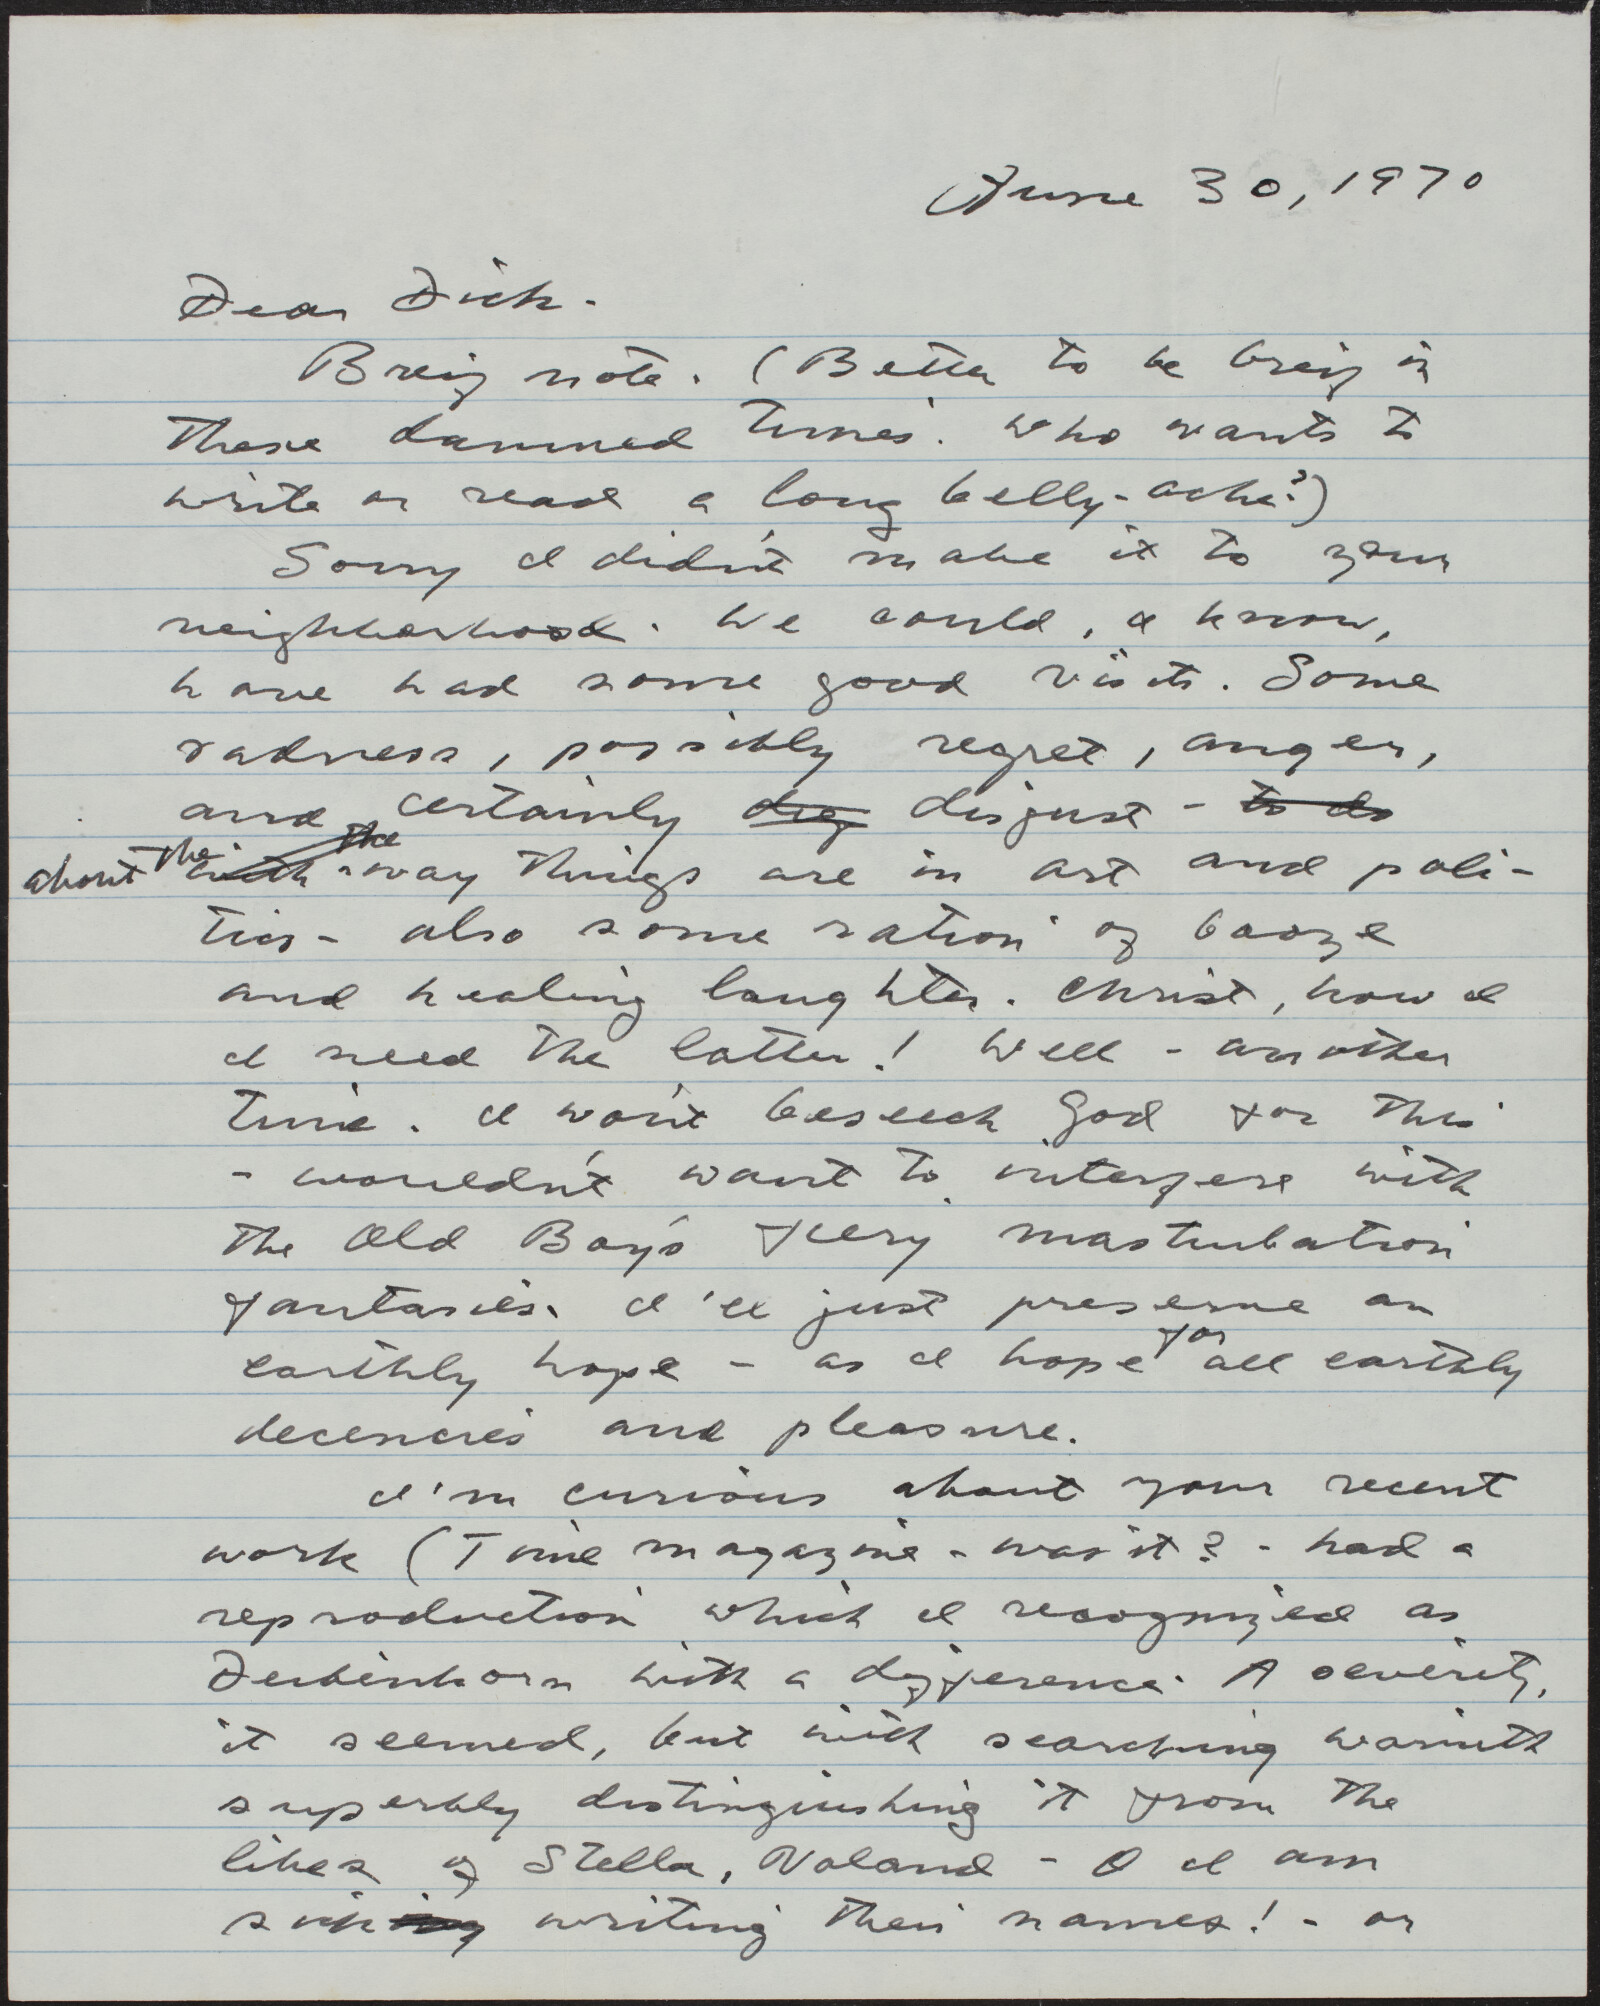 June 30, 1970
Dear Dick -
Brief note. (Better to be brief in
these damned times. Who wants to
write or read a long belly-ache?)
Sorry I didn't make it to your
neighborhood. We could, I know,
have had some good visits. Some
sadness, possibly regret, anger,
and certainly dig disgust - to do
about the with the way things are in art and poli-
tics - also some ration of booze
and healing laughter. Christ, how I
I need the latter! Well - another
time. I won't beseech God for this
- wouldn't want to interfere with
the Old Boy's fiery masturbation
fantasies. I'll just preserve an
earthly hope - as I hope for all earthly
decencies and pleasure.
I'm curious about your recent
work (Time magazine - was it? - had a
reproduction which I recognized as
Deibenkorn with a difference. A severity,
it seemed, but with searching warmth
superbly distinguishing it from the
likes of Stella, Noland - O I am
sick writing their names! - or